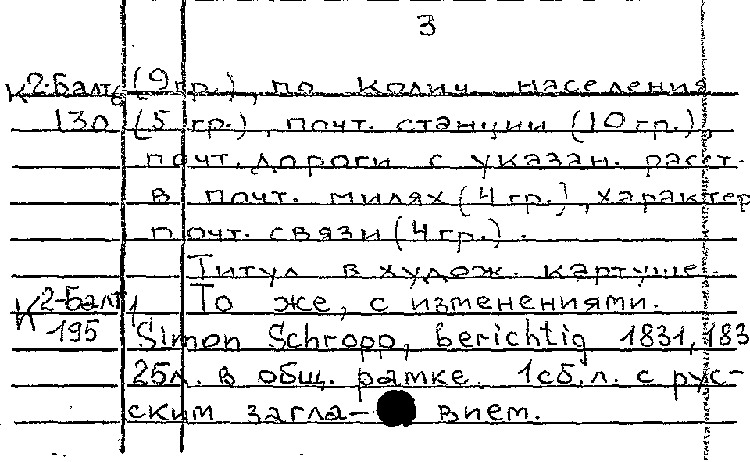 3
К 2-Балт 6 (9 гр.), по колич. населения
130 (5 гр.), почт. станции (10 гр.),
почт. дороги с указан. расст.
в почт. милях (4 гр.), характер
почт. связи (4 гр.).
Титул в худож. картуше.
К 2-Балт 1 То же, с изменениями.
195 Simon Schropp, berichtig 1831, 183
25л. в общ. рамке. 1сб.л. с рус-
ским загла- вием.